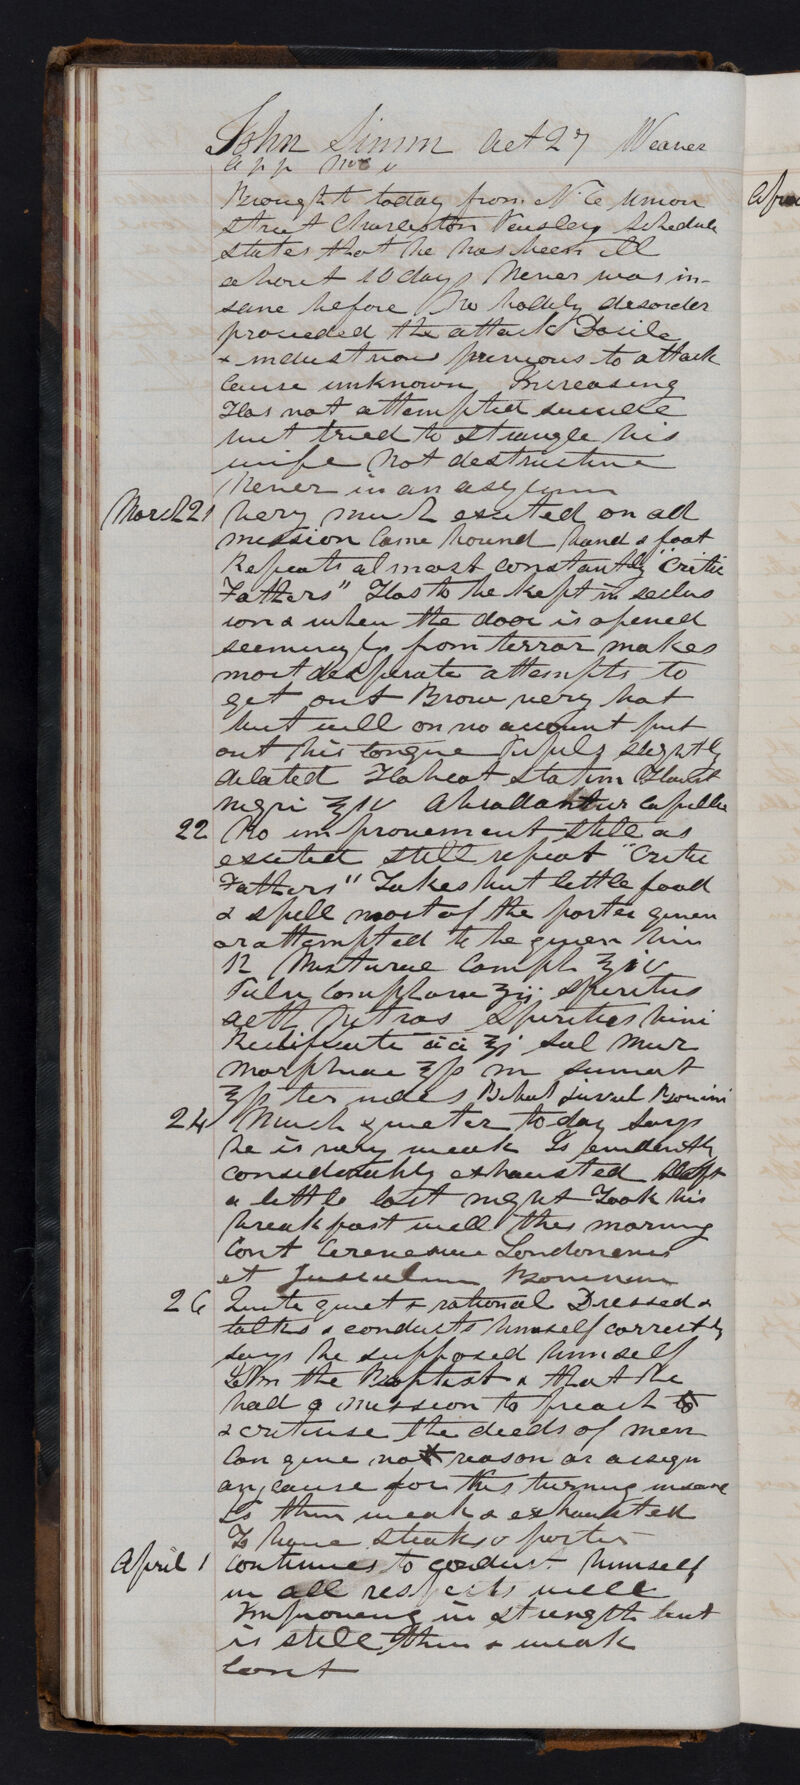 John Simm Aet 27 Weaver
app No
Brought today from No 72 Union
Street Charleston Paisley Schedule
states that he has been ill
about 10 days Never was in-
sane before No bodily disorder
preceeded the attack Docile
& industrious previous to attack
Cause unknown Increasing
Has not attempted suicide
but tried to strangle his
wife Not destructive
Never in an asylum
March 21 Very much excited on ad
mission Came bound hand & foot
Repeats almost constantly "Critic
Fathers" Has to be kept in seclus
ion & when the door is opened
seemingly from terror makes
most desperate attempts to
get out Brow very hot
but will on no account put
out his tongue Pupils slightly
dilated Habeat Statim Haust
nigri ℥iv Abradantur capilli
22 No improvement still as
excited still repeat "Critic
Fathers" Takes but little food
& spill most of the porter given
or attempted to be given him
R Misturae Camph ℥iv
Pulv Camphorae ʒij Spiritus
aeth Nitros Spiritus vini
Rectificati āā ℥j Sal Mur
Morphiae ʒſs m sumat
℥ſs ter indies Bovini
24 Much quieter today says
he is very weak Is evidently
considerably exhausted Slept
a little last night Took his
breakfast well this morning
Cont Cerevesiae Londonensis
et Jusculum Bovinum
26 Quite quiet & rational Dressed &
talks & conducts himself correctly
says he supposed himself
John the Baptist & that he
had a mission to preach to
& criticise the deeds of men
Can give no reason or assign
any cause for this turning insane
Is thin weak & exhausted
To have steaks & porter
April 1 Continues to conduct himself
in all respects well
Improving in strength but
is still thin & weak
Cont
Apri